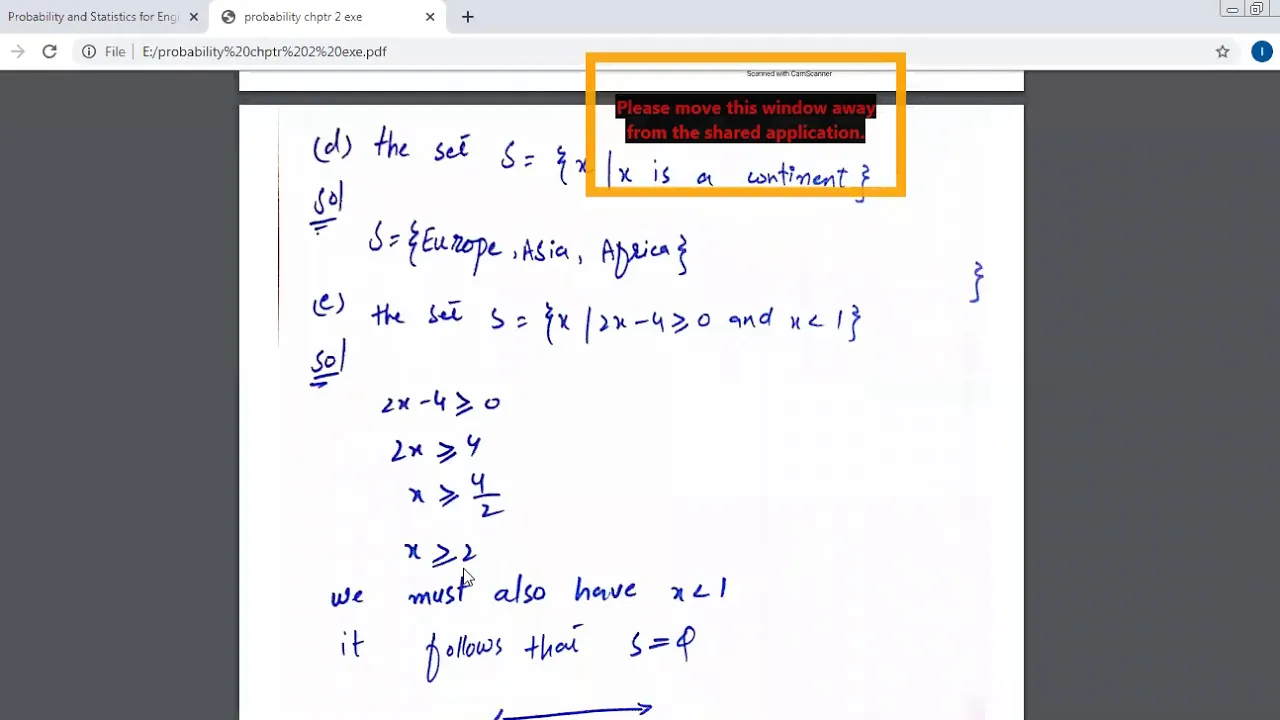 Probability and Statistics for Engi
probability chptr 2 exe
File E:/probability%20chptr%202%20exe.pdf
I
Scanned with CamScanner
Please move this window away
from the shared application.
(d) the set S = {x | x is a continent}
Sol
S = {Europe, Asia, Africa}
}
(e) the set S = {x | 2x - 4 ≥ 0 and x < 1}
Sol
2x - 4 ≥ 0
2x ≥ 4
x ≥ 4/2
x ≥ 2
we must also have x < 1
it follows that S = φ